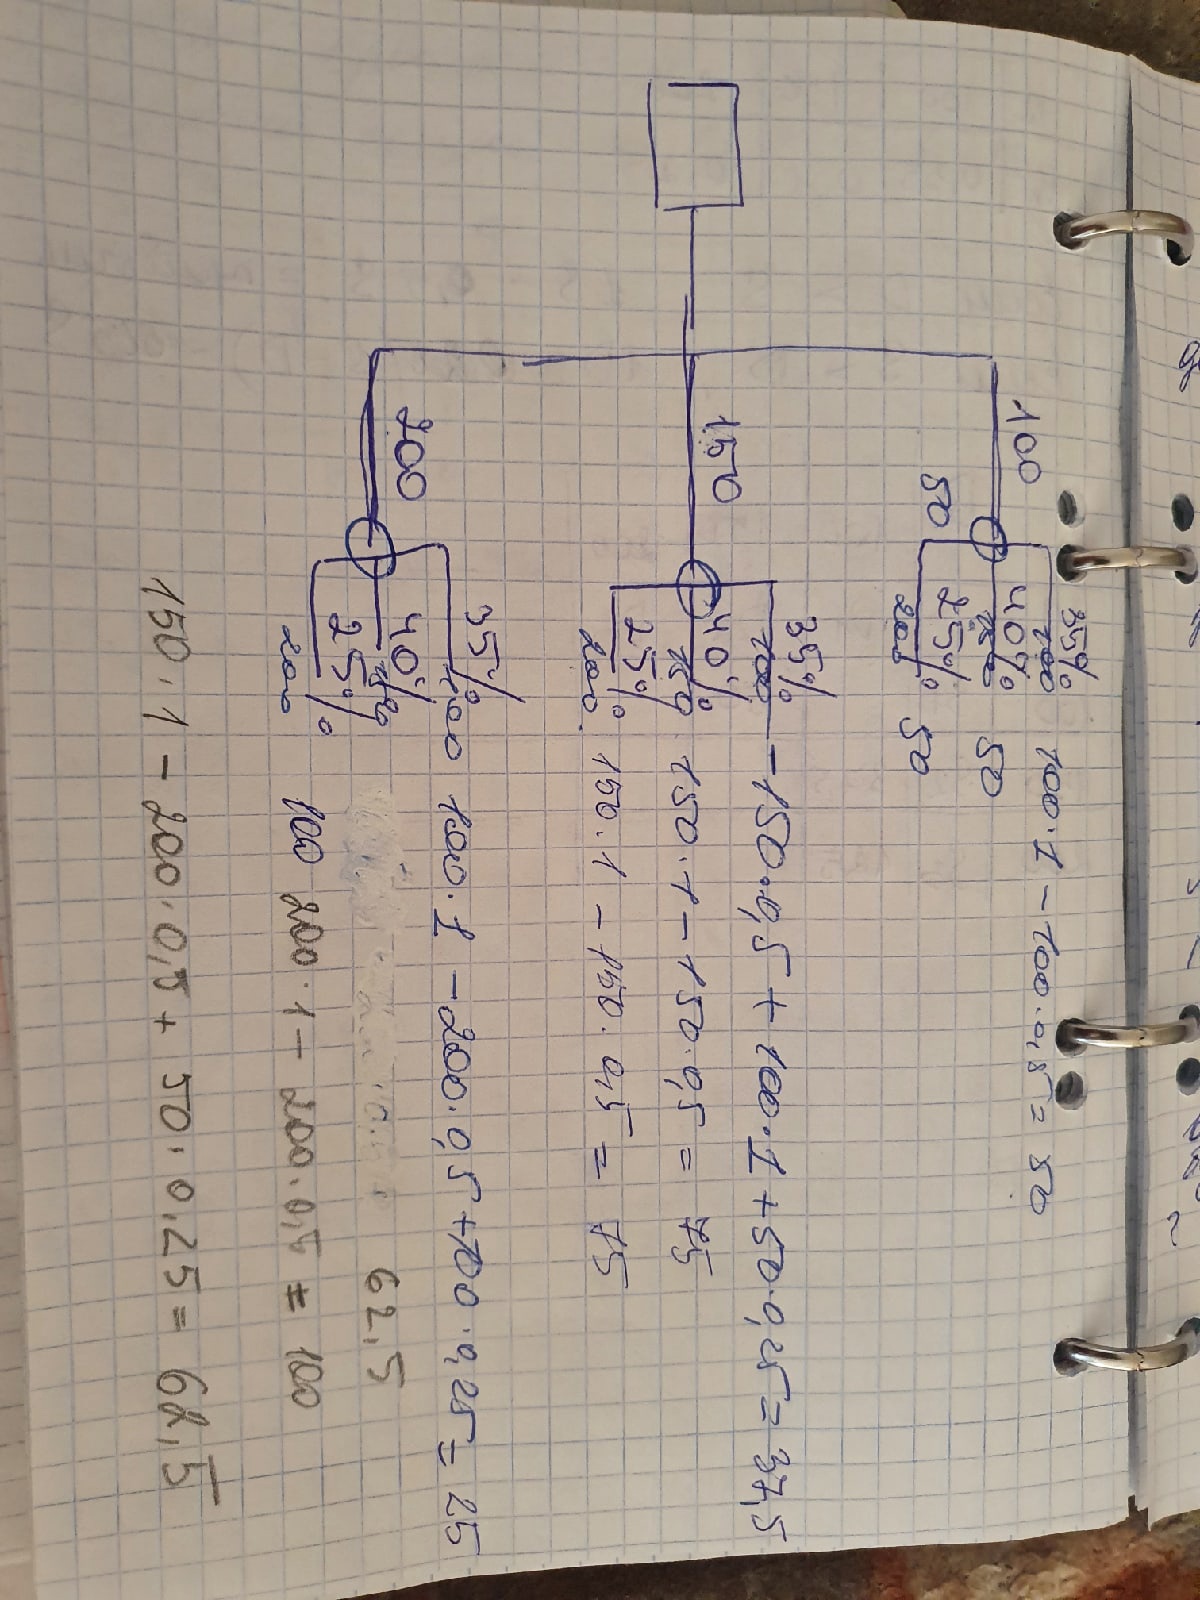 35%
100 100 100·1 - 100·0,5 = 50
40%
150 50
25%
50
200 50
35%
100 -150·0,5 + 100·1 + 50·0,25 = 37,5
150 40%
150 150·1 - 150·0,5 = 75
25%
200. 150·1 - 150·0,5 = 75
35%
100 100·1 - 200·0,5 + 100·0,25 = 25
200 40%
150 62,5
25%
200 100 200·1 - 200·0,5 = 100
150·1 - 200·0,5 + 50·0,25 = 62,5